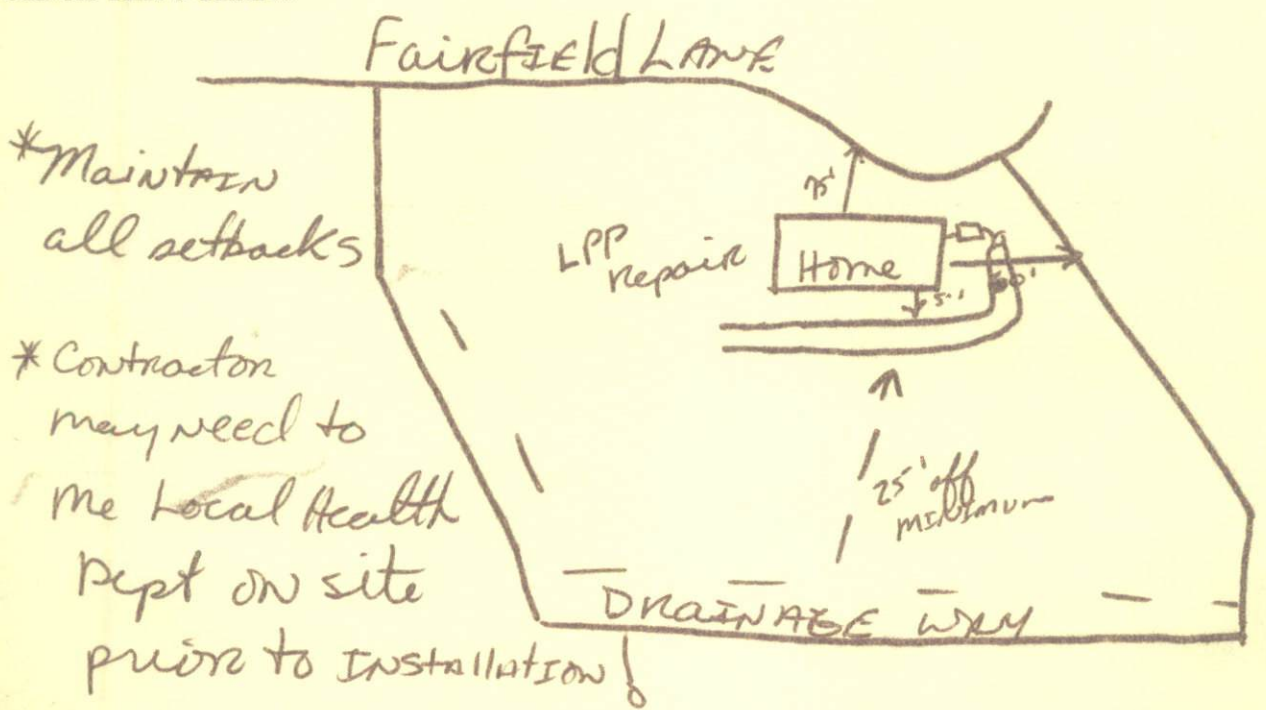 FairfIEld LANE
*MaintAIN
all setbacks
* Contractor
may Need to
me Local Health
Dept ON site
prior to INStallation!
75'
LPP
repair
Home
5'
25' off
MINIMUM
DRAINAGE WAY